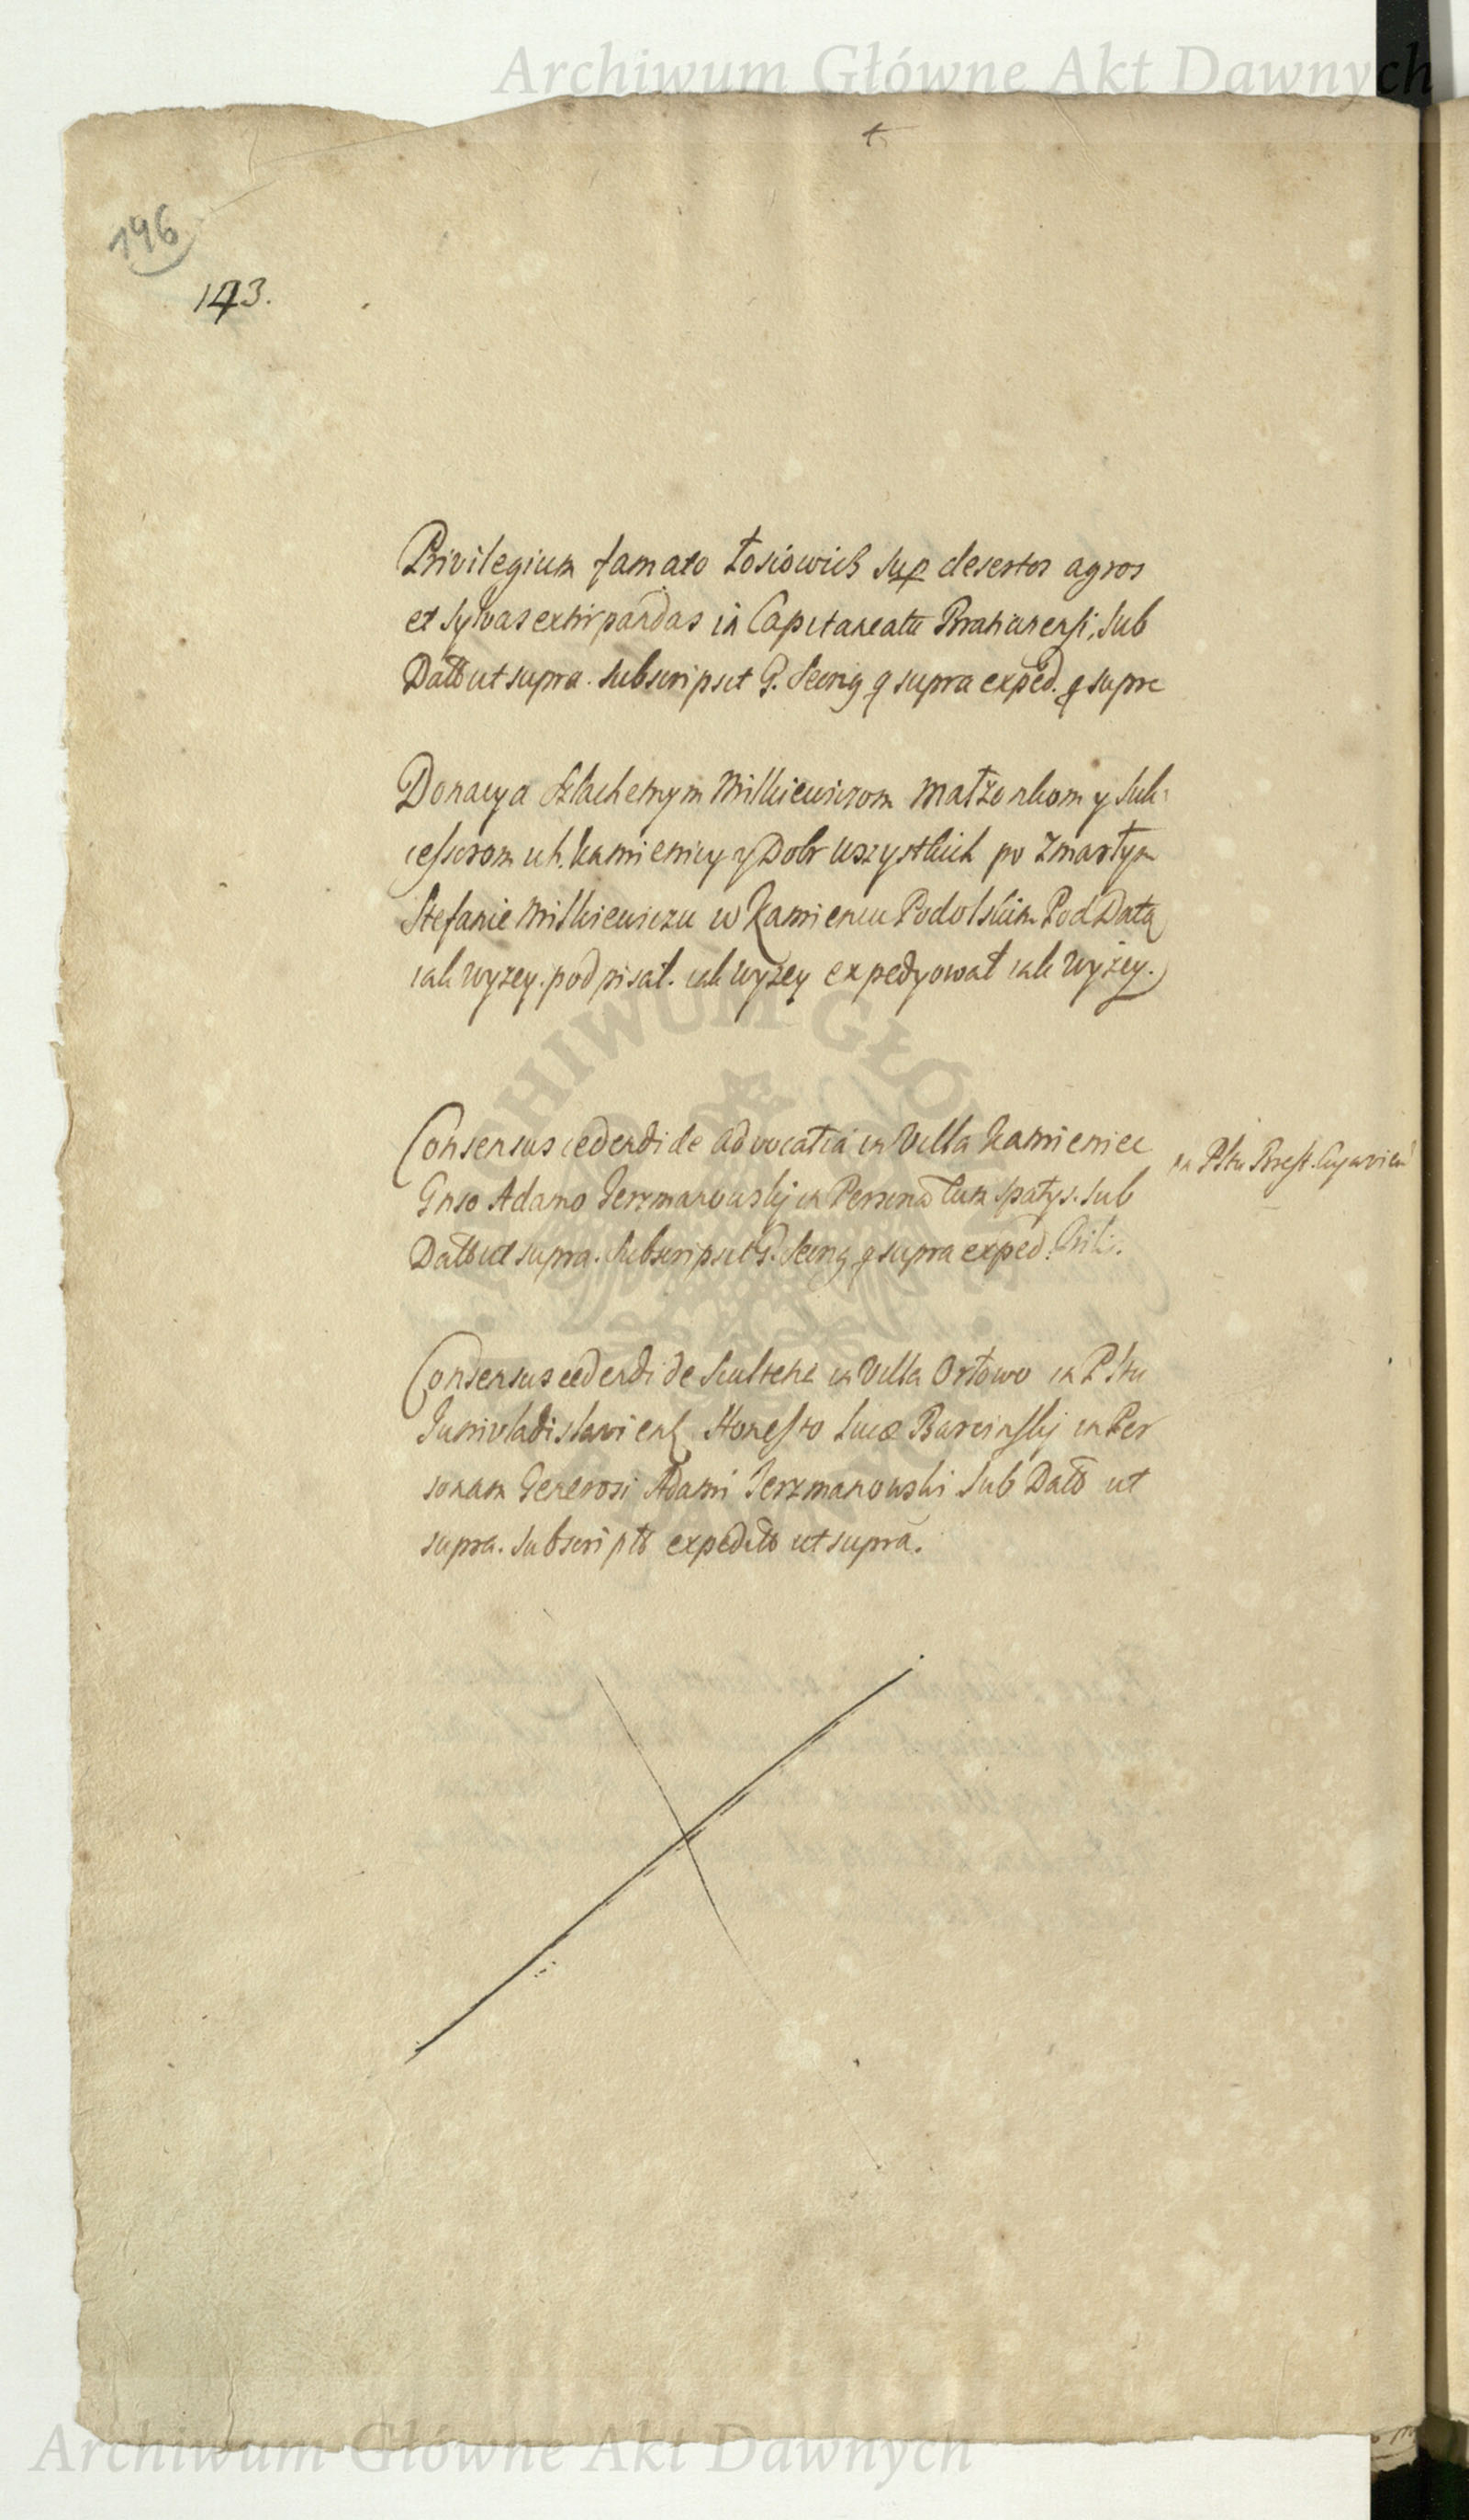 Archiwum Główne Akt Dawnych
196
143.
Privilegium famato Łosiowicz sup desertos agros
et sylvas extirpandas in Capitaneatu Bratianensi, sub
Dato ut supra. subscripsit G. Secrig q supra exped. q supra
Donacya Szlachetnym Milkiewiczom Małżonkom y Suk:
cessorom ich. kamienicy y Dobr wszystkich po Zmarłym
Stefanie Milkiewiczu w Kamiencu Podolskim Pod Datą
iak wyzey. podpisał. iak wyzey expedyował iak wyżey.
Consensus cedendi de advocatia in Villa Kamieniec
in Pttu Brest. Cujavien
Gnso Adamo Jerzmanowskij in Personā cum spatys. sub
Dato ut supra. Subscripsit G. Secrig q supra exped.
Consensus cedendi de Scultetia in Villa Orłowo in Pttu
Junivladislavien Honesto Lucæ Barcinskij in Per
sonam Generosi Adami Jerzmanowski Sub Dato ut
supra. Subscripto expedito ut supra.
ARCHIWUM GŁÓWNE AKT DAWNYCH
Archiwum Główne Akt Dawnych